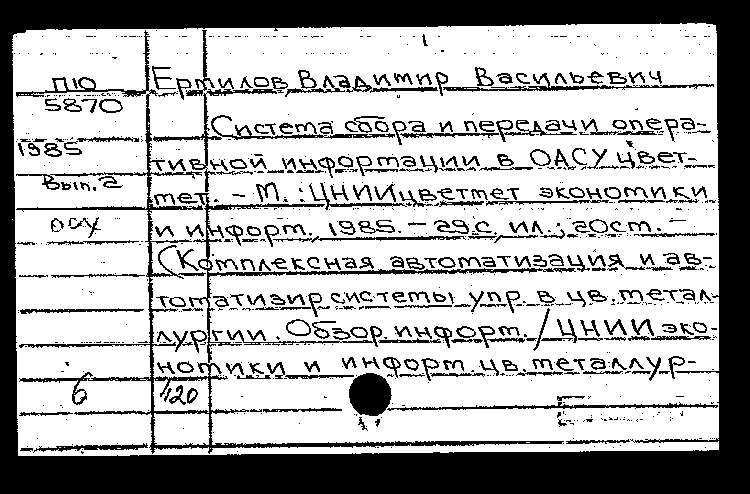 ПЮ Ермилов, Владимир Васильевич
5870
Система сбора и передачи опера-
1985
тивной информации в ОАСУ цвет-
Вып. 2
мет. - М. : ЦНИИцветмет экономики
ОСУ
и информ., 1985. - 29 с., ил.; 20 см. -
(Комплексная автоматизация и ав-
томатизир. системы упр. в цв. метал-
лургии. Обзор. информ. / ЦНИИ эко-
номики и информ. цв. металлур-
6 420